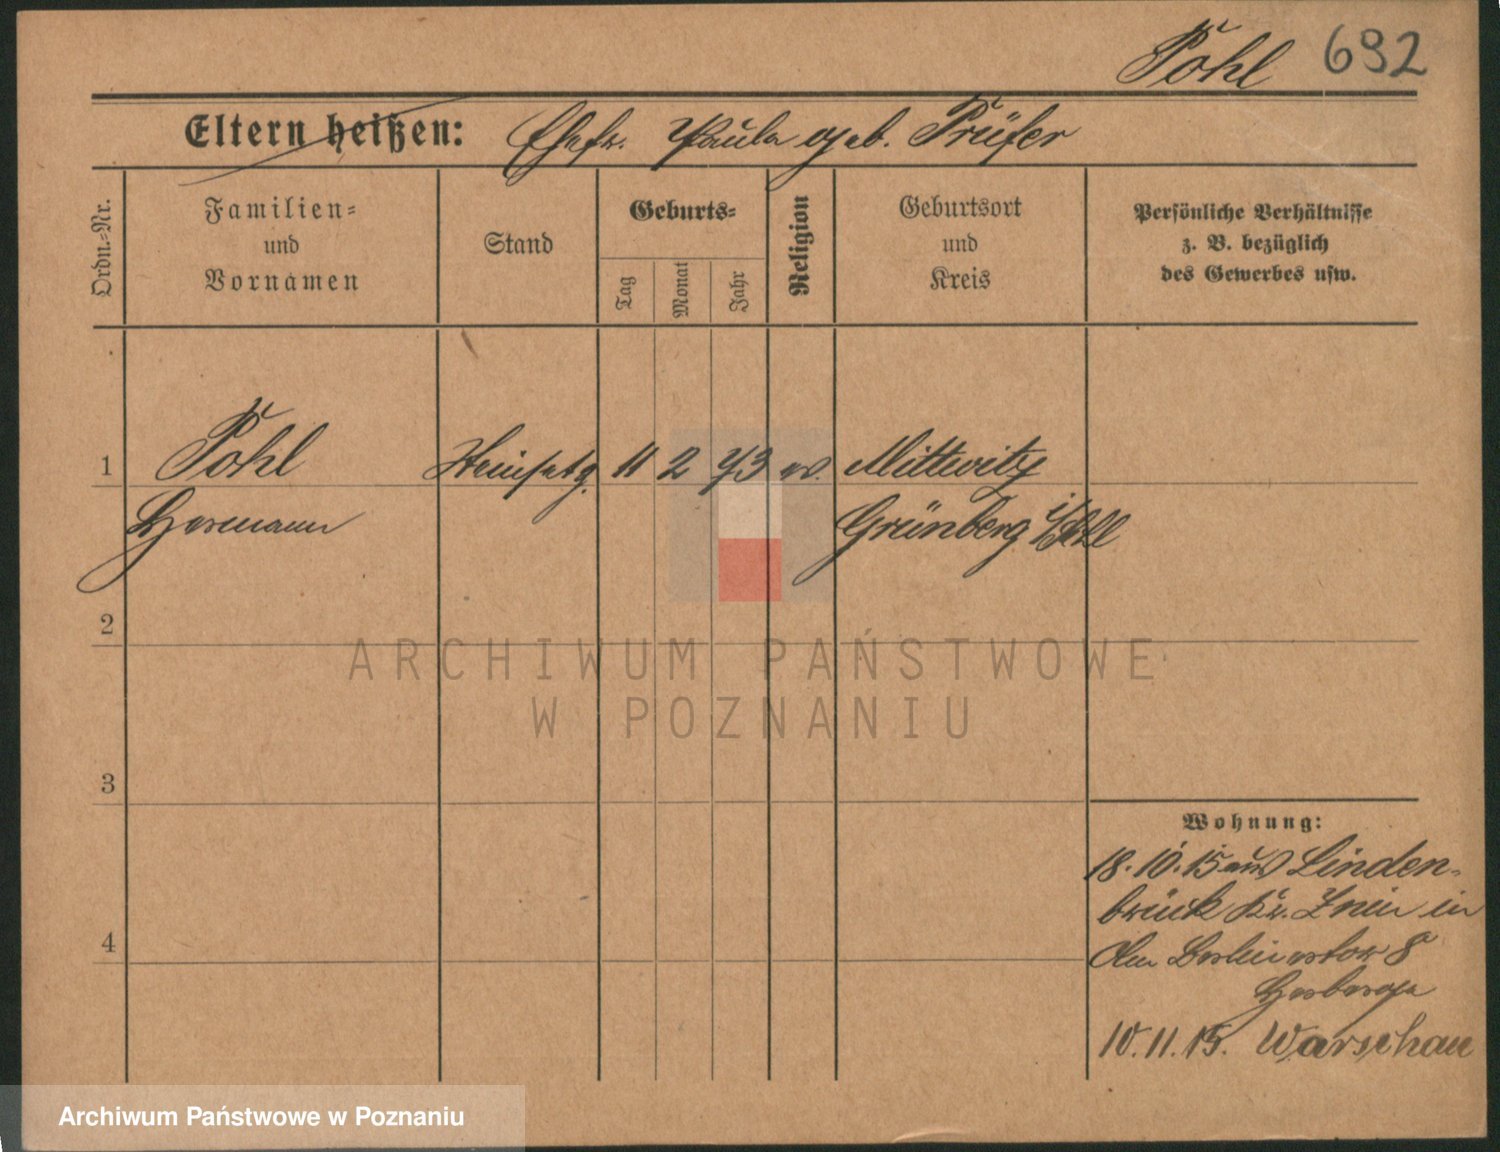 Pohl 692
Eltern heißen: Ehefr. Paula geb. Prüfer
Ordn.-Nr.
Familien-
und
Vornamen
Stand
Geburts-
Tag
Monat
Jahr
Religion
Geburtsort
und
Kreis
Persönliche Verhältnisse
z. B. bezüglich
des Gewerbes usw.
1 Pohl Steinsetzg. 11 2 73 ev. Mittwitz
Hermann Grünberg i/Schl
2
3
4
Wohnung:
18.10.15 aus Linden-
brück Kr. Znin in
Am Berlinertor 8
Herberge
10.11.15. Warschau
ARCHIWUM PAŃSTWOWE
W POZNANIU
Archiwum Państwowe w Poznaniu